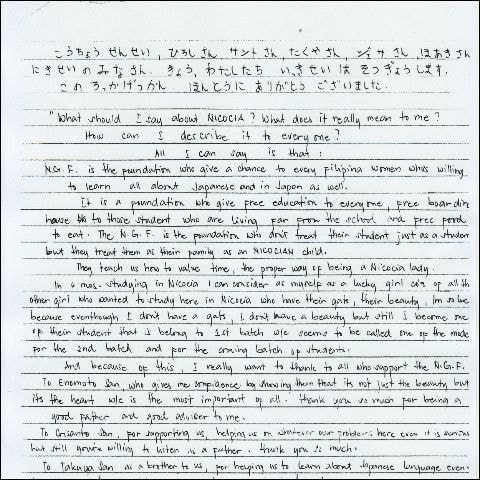 こうちょう せんせい, ひろし さん, サント さん, たくや さん, ジェサ さん, ほあき さん
にきせい の みなさん. きょう, わたしたち いっきせい は そつぎょう します.
この ろっかげつかん ほんとうに ありがとう ございました.
"What should I say about NICOCIA? What does it really mean to me?
How can I describe it to everyone?
All I can say is that:
N.G.F. is the foundation who give a chance to every filipina women who's willing
to learn all about Japanese and in Japan as well.
It is a foundation who give free education to everyone, free boardin
house to those student who are living far from the school and free food
to eat. The N.G.F. is the foundation who don't treat their student just as a studen
but they treat them as their family as an NICOCIAN child.
They teach us how to value time, the proper way of being a Nicocia lady.
In 6 mos. studying in Nicocia I can consider as myself as a lucky girl coz of all th
other girl who wanted to study here in Nicocia who have their gats, their beauty, Im so luc
because eventhough I don't have a gats, I don't have a beauty but still I become one
of their student that is belong to 1st batch w/c seems to be called one of the mode
for the 2nd batch and for the coming batch of students.
And because of this, I really want to thank to all who support the N.G.F.
To Enomoto San who gives me confidence by showing them that its not just the beauty but
its the heart w/c is the most important of all. thank you so much for being a
good father and good adviser to me.
To Crisanto San, for supporting us, helping us on whatever our problems here even it is serious
but still you're willing to listen as a father. thank you so much.
To Takuya San as a brother to us, for helping us to learn about Japanese language even